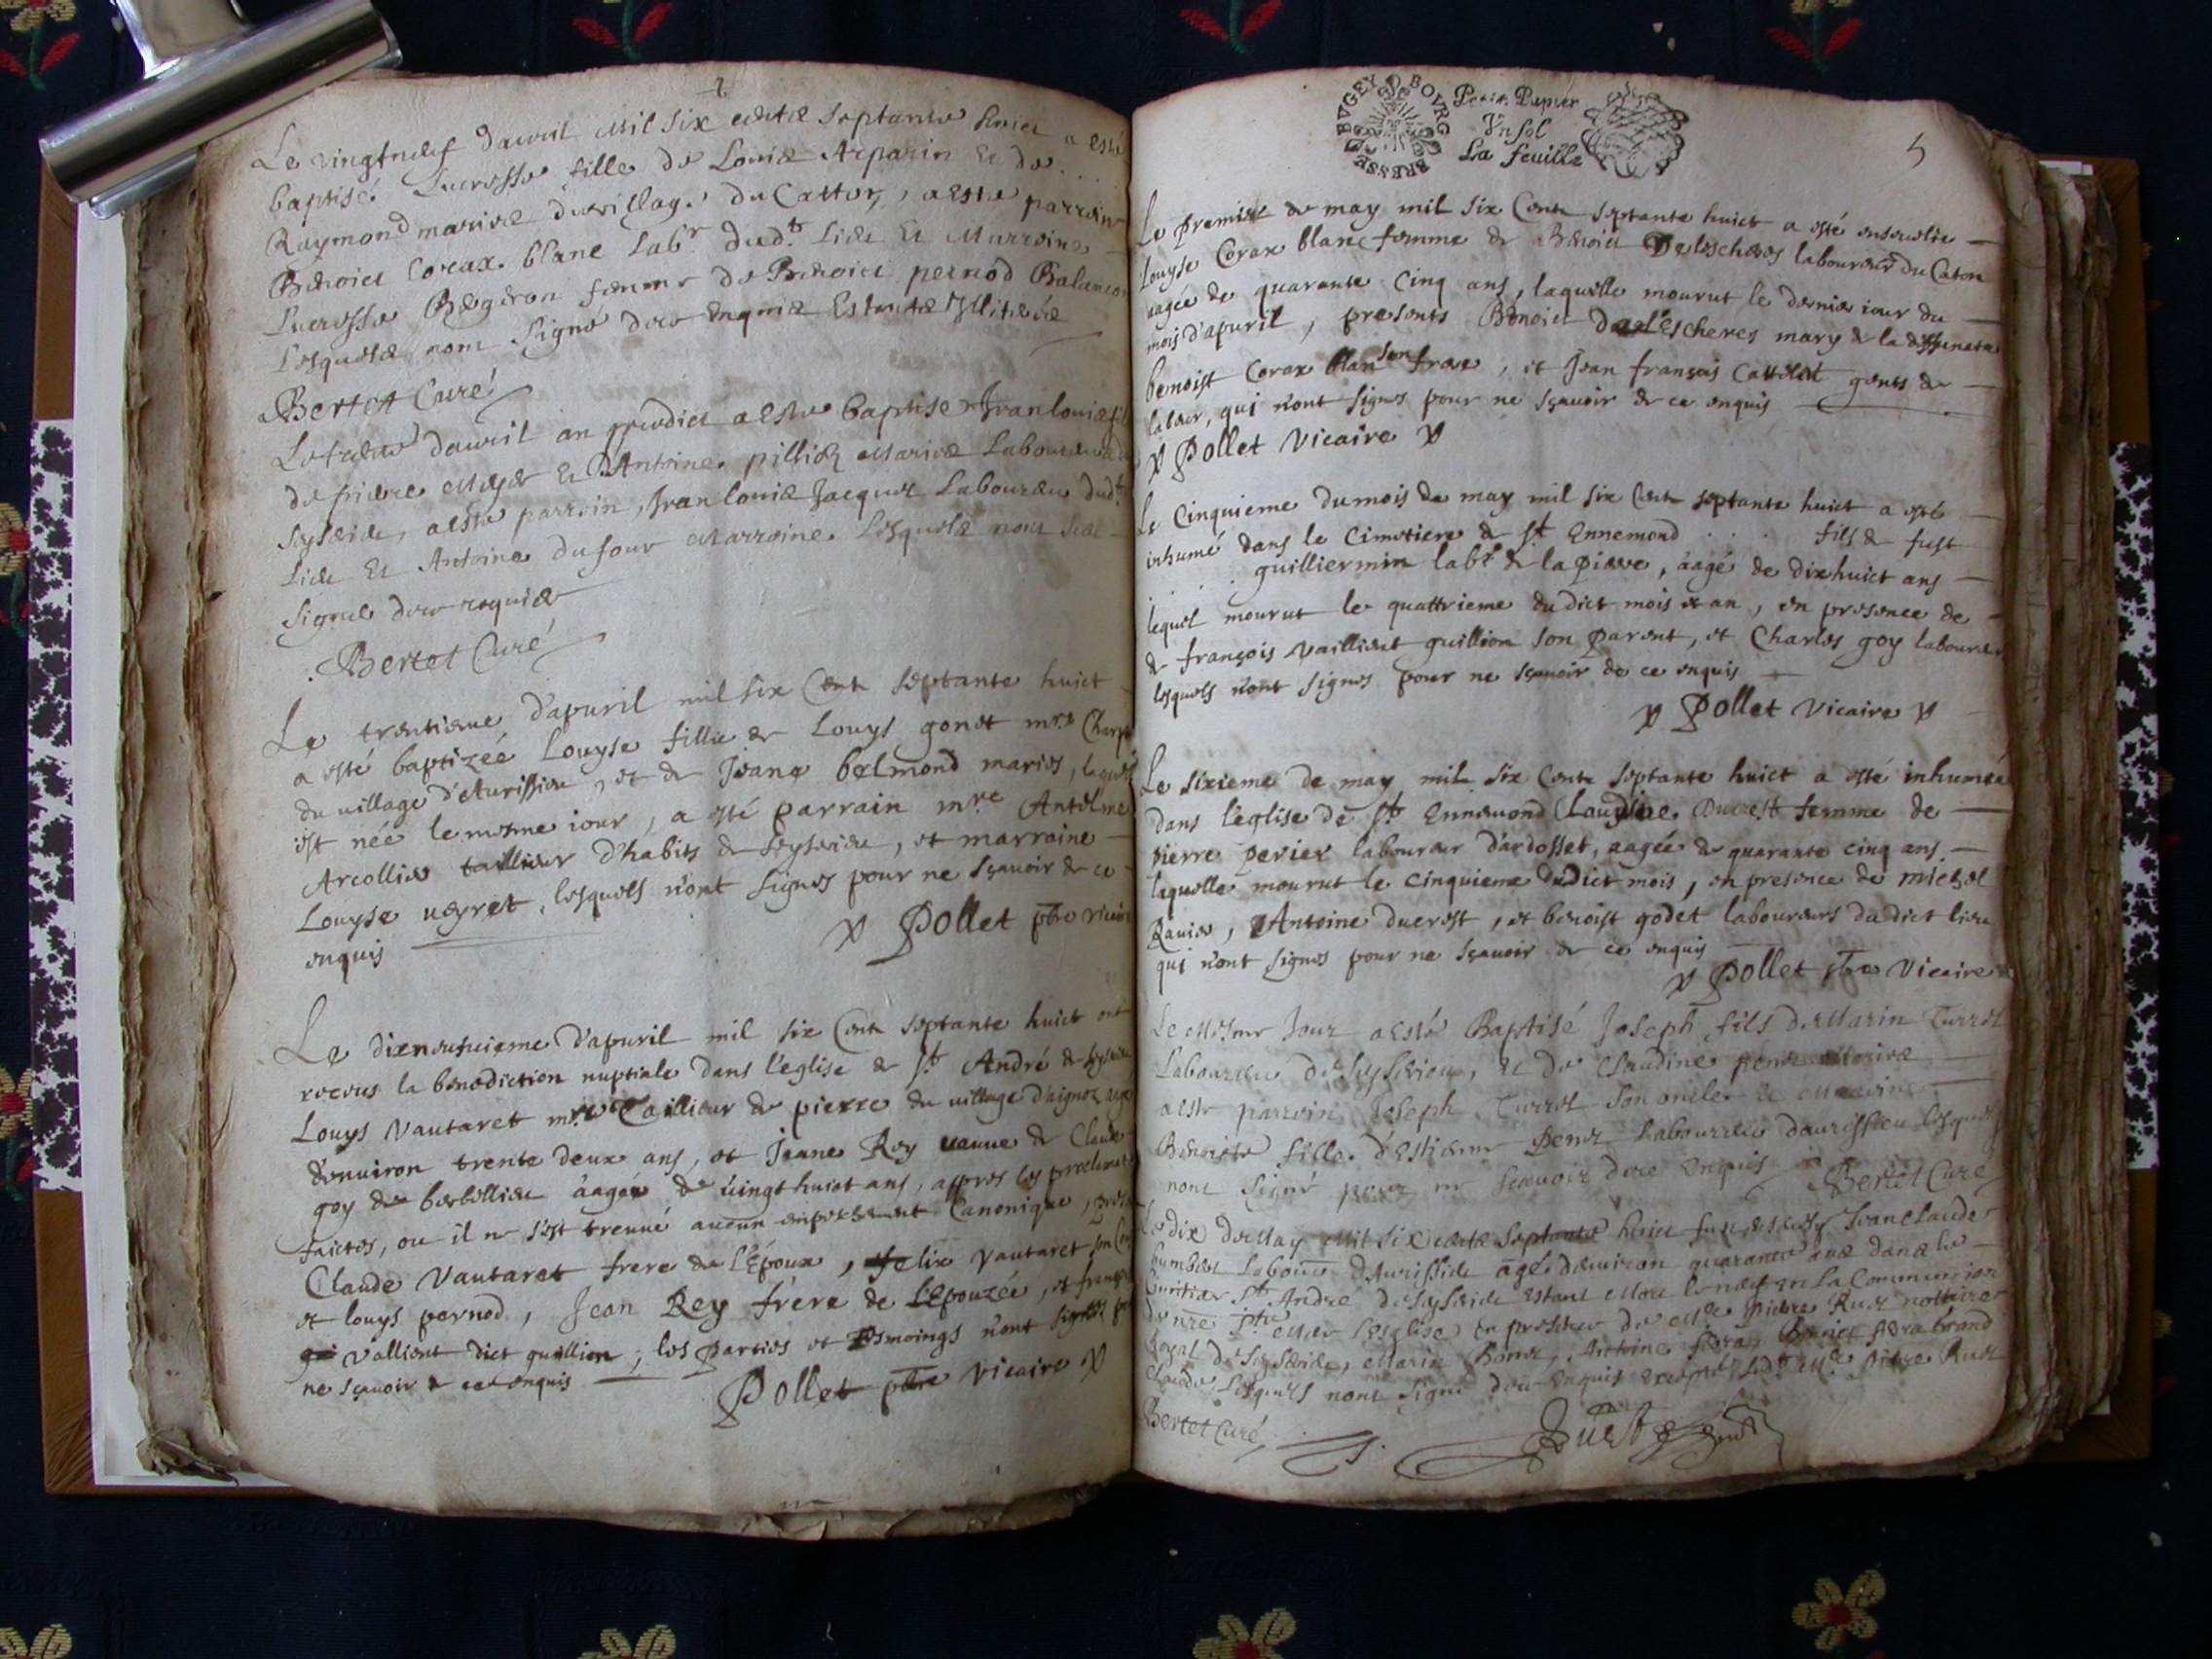 Le vingtneuf davvril Mil six centz septante huict a esté
baptisé Lucresse fille de Louis Arparin Et de
Raymond mariez du village du Catton, a esté parrein
Benoict Corax blanc Labr dudt Lieu Et Marreine
Lucresse femme de Benoict pernod
Lesquelz nont Signé de ce enquis Estantz Illiterez
Bertet Curé
davvril an predict a esté baptise Jean louis
de pierre Et Antoine mariez Laboureur
Seyserieu, a esté parrein, Jean louis Jacquet Laboureur dudt
Lieu Et Antoine dufour Marreine Lesquelz nont
Signé de ce requis
Bertet Curé
Le trentieme d'apuril mil six Cents septante huict
a esté baptizée Louyse fillie de Louys gonet mre Charp
du uillage d'Aurissieu, et de Jeane belmond mariés, laquel
est née le mesme iour, a esté parrain mre Antelme
Arcollier taillieur d'habits de Seyserieu, et marraine
Louyse ueyret, lesquels n'ont signés pour ne sçauoir de ce
enquis
Pollet pbre vicaire
Le dixneufuieme d'apuril mil six Cents septante huict ont
receus la benediction nuptiale dans l'eglise de St André de Seyserieu
Louys Vautaret mre Taillieur de pierre du uillage d'aignoz aagé
d'enuiron trente deux ans, et Jeane Rey ueuue de Claude
goy de berbellieu âagée de uingt huict ans, appres les proclamat
faictes, ou il ne s'est treuué aucun empechement Canonique,
Claude Vautaret frere de l'Epoux, felix Vautaret son
et louys pernod, Jean Rey frère de l'Epouzée, et
Vallient dict guillion; les parties et tesmoings n'ont signés p
ne sçauoir de ce enquis
Pollet pbre Vicaire
BRESSE BVGEY BOVRG
Petit Papier
Vn sol
La feuille
5
Le premier de may mil six Cents septante huict a esté enseuelie
louyse Corax blanc femme de Benoict Delescheres laboureur du Caton
aagée de quarante cinq ans, laquelle mourut le dernier iour du
mois d'apuril, presents Benoict de l'Escheres mary de la deffuncte
benoist Corax blan son frere, et Jean françois Cattelat gents de
labeur, qui n'ont signes pour ne sçauoir de ce enquis
Pollet Vicaire
Le Cinquieme du mois de may mil six Cents septante huict a esté
inhumé dans le Cimetiere de St Ennemond . . . fils de fust
guilliermin labr de la pierre, âagé de dixhuict ans
lequel mourut le quattrieme du dict mois et an, en presence de
de françois Vaillient guillion son parent, et Charles goy laboureur
lesquels n'ont signes pour ne sçauoir de ce enquis
Pollet Vicaire
Le sixieme de may mil six Cents septante huict a esté inhumée
dans l'église de St Ennemond Claudine Ducrest femme de
pierre perier laboureur d'ardosset, aagée de quarante cinq ans
laquelle mourut le cinquieme du dict mois, en presence de michel
Rauier, Antoine ducrest, et benoist godet laboureurs du dict lieu
qui n'ont signes pour ne sçauoir de ce enquis
Pollet pbre Vicaire
Le Mesme Jour a esté Baptisé Joseph fils de Marin Turrel
Laboureur de Seyserieu, et de Claudine mariez
a este parrein Joseph Turrel Son oncle et Marreine
Benoiste fille d'Estienne Laboureur daurissieu lesquelz
nont Signé pour ne scavoir de ce enquis Bertet Curé
Le dix de May Mil six centz septante huict fut enseuely Jean Claude
humbert Labour dAurissieu agé denuiron quarante ans dans le
Cimitier St André de Seyserieu Estant Mort le neuf en La Communion
de nre Ste Mere Lesglise en presence de Mre pierre Ruet nottaire
Royal de Seyserieu, Marin
Claude, Lesquelz nont signé de ce Enquis Excepté Ledt Mre pierre Ruet
Bertet Curé
Ruet